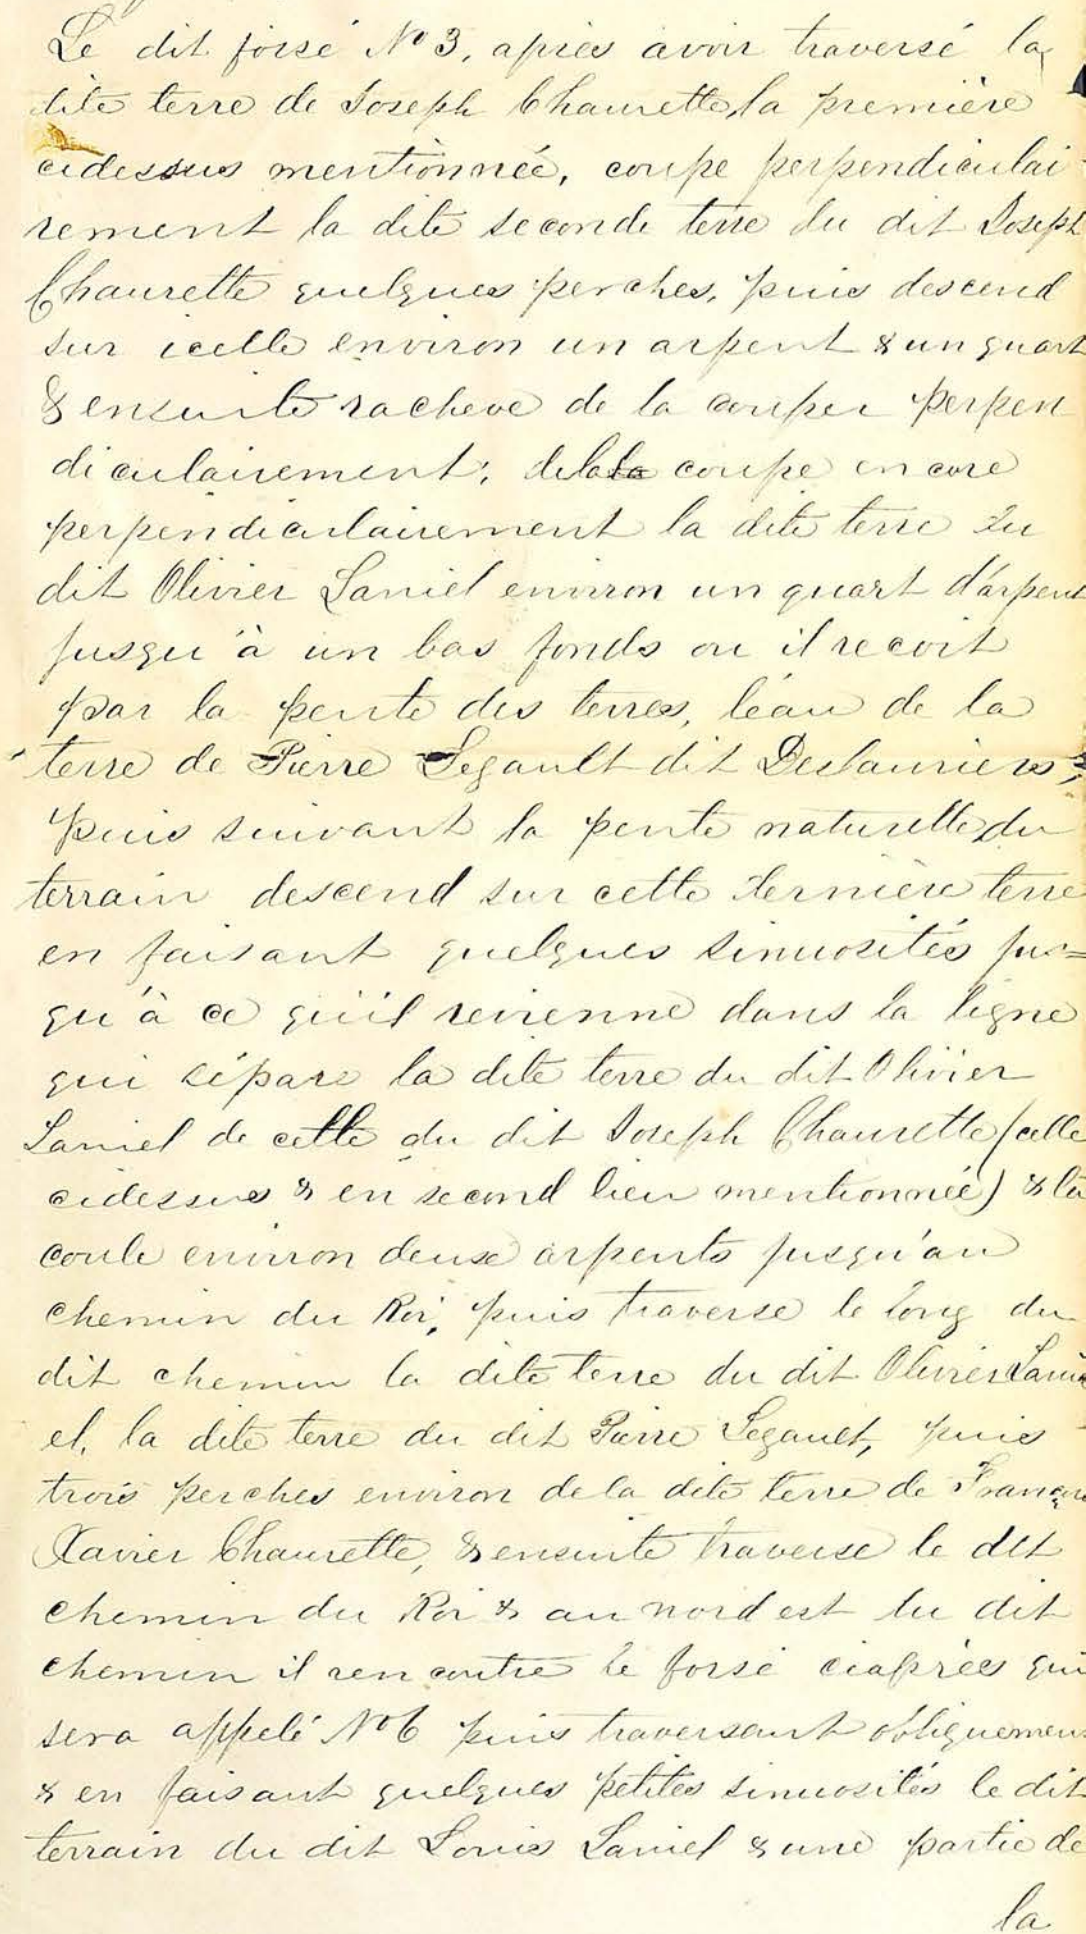 Le dit fossé No 3, après avoir traversé la
dite terre de Joseph Chaurette, la première
cidessus mentionnée, coupe perpendiculai
rement la dite seconde terre du dit Joseph
Chaurette quelques perches, puis descend
sur icelle environ un arpent & un quart
& ensuite racheve de la couper perpen
diculairement; delà coupe encore
perpendiculairement la dite terre du
dit Olivier Laniel environ un quart d'arpent
jusqu'à un bas fonds ou il recoit
par la pente des terres, l'eau de la
terre de Pierre Legault dit Deslauriers;
puis suivant la pente naturelle du
terrain descend sur cette dernière terre
en faisant quelques sinuosités jus=
qu'à ce qu'il revienne dans la ligne
qui sépare la dite terre du dit Olivier
Laniel de celle du dit Joseph Chaurette (celle
cidessus & en second lieu mentionnée) & là
coule environ deux arpents jusqu'au
chemin du Roi, puis traverse le long du
dit chemin la dite terre du dit Olivier Lani
el, la dite terre du dit Pierre Legault, puis
trois perches environ de la dite terre de François
Xavier Chaurette, & ensuite traverse le dit
chemin du Roi & au nord est du dit
chemin il rencontre le fossé ciaprès qui
sera appelé No 6 puis traversant obliquement
& en faisant quelques petites sinuosités le dit
terrain du dit Louis Laniel & une partie de
la